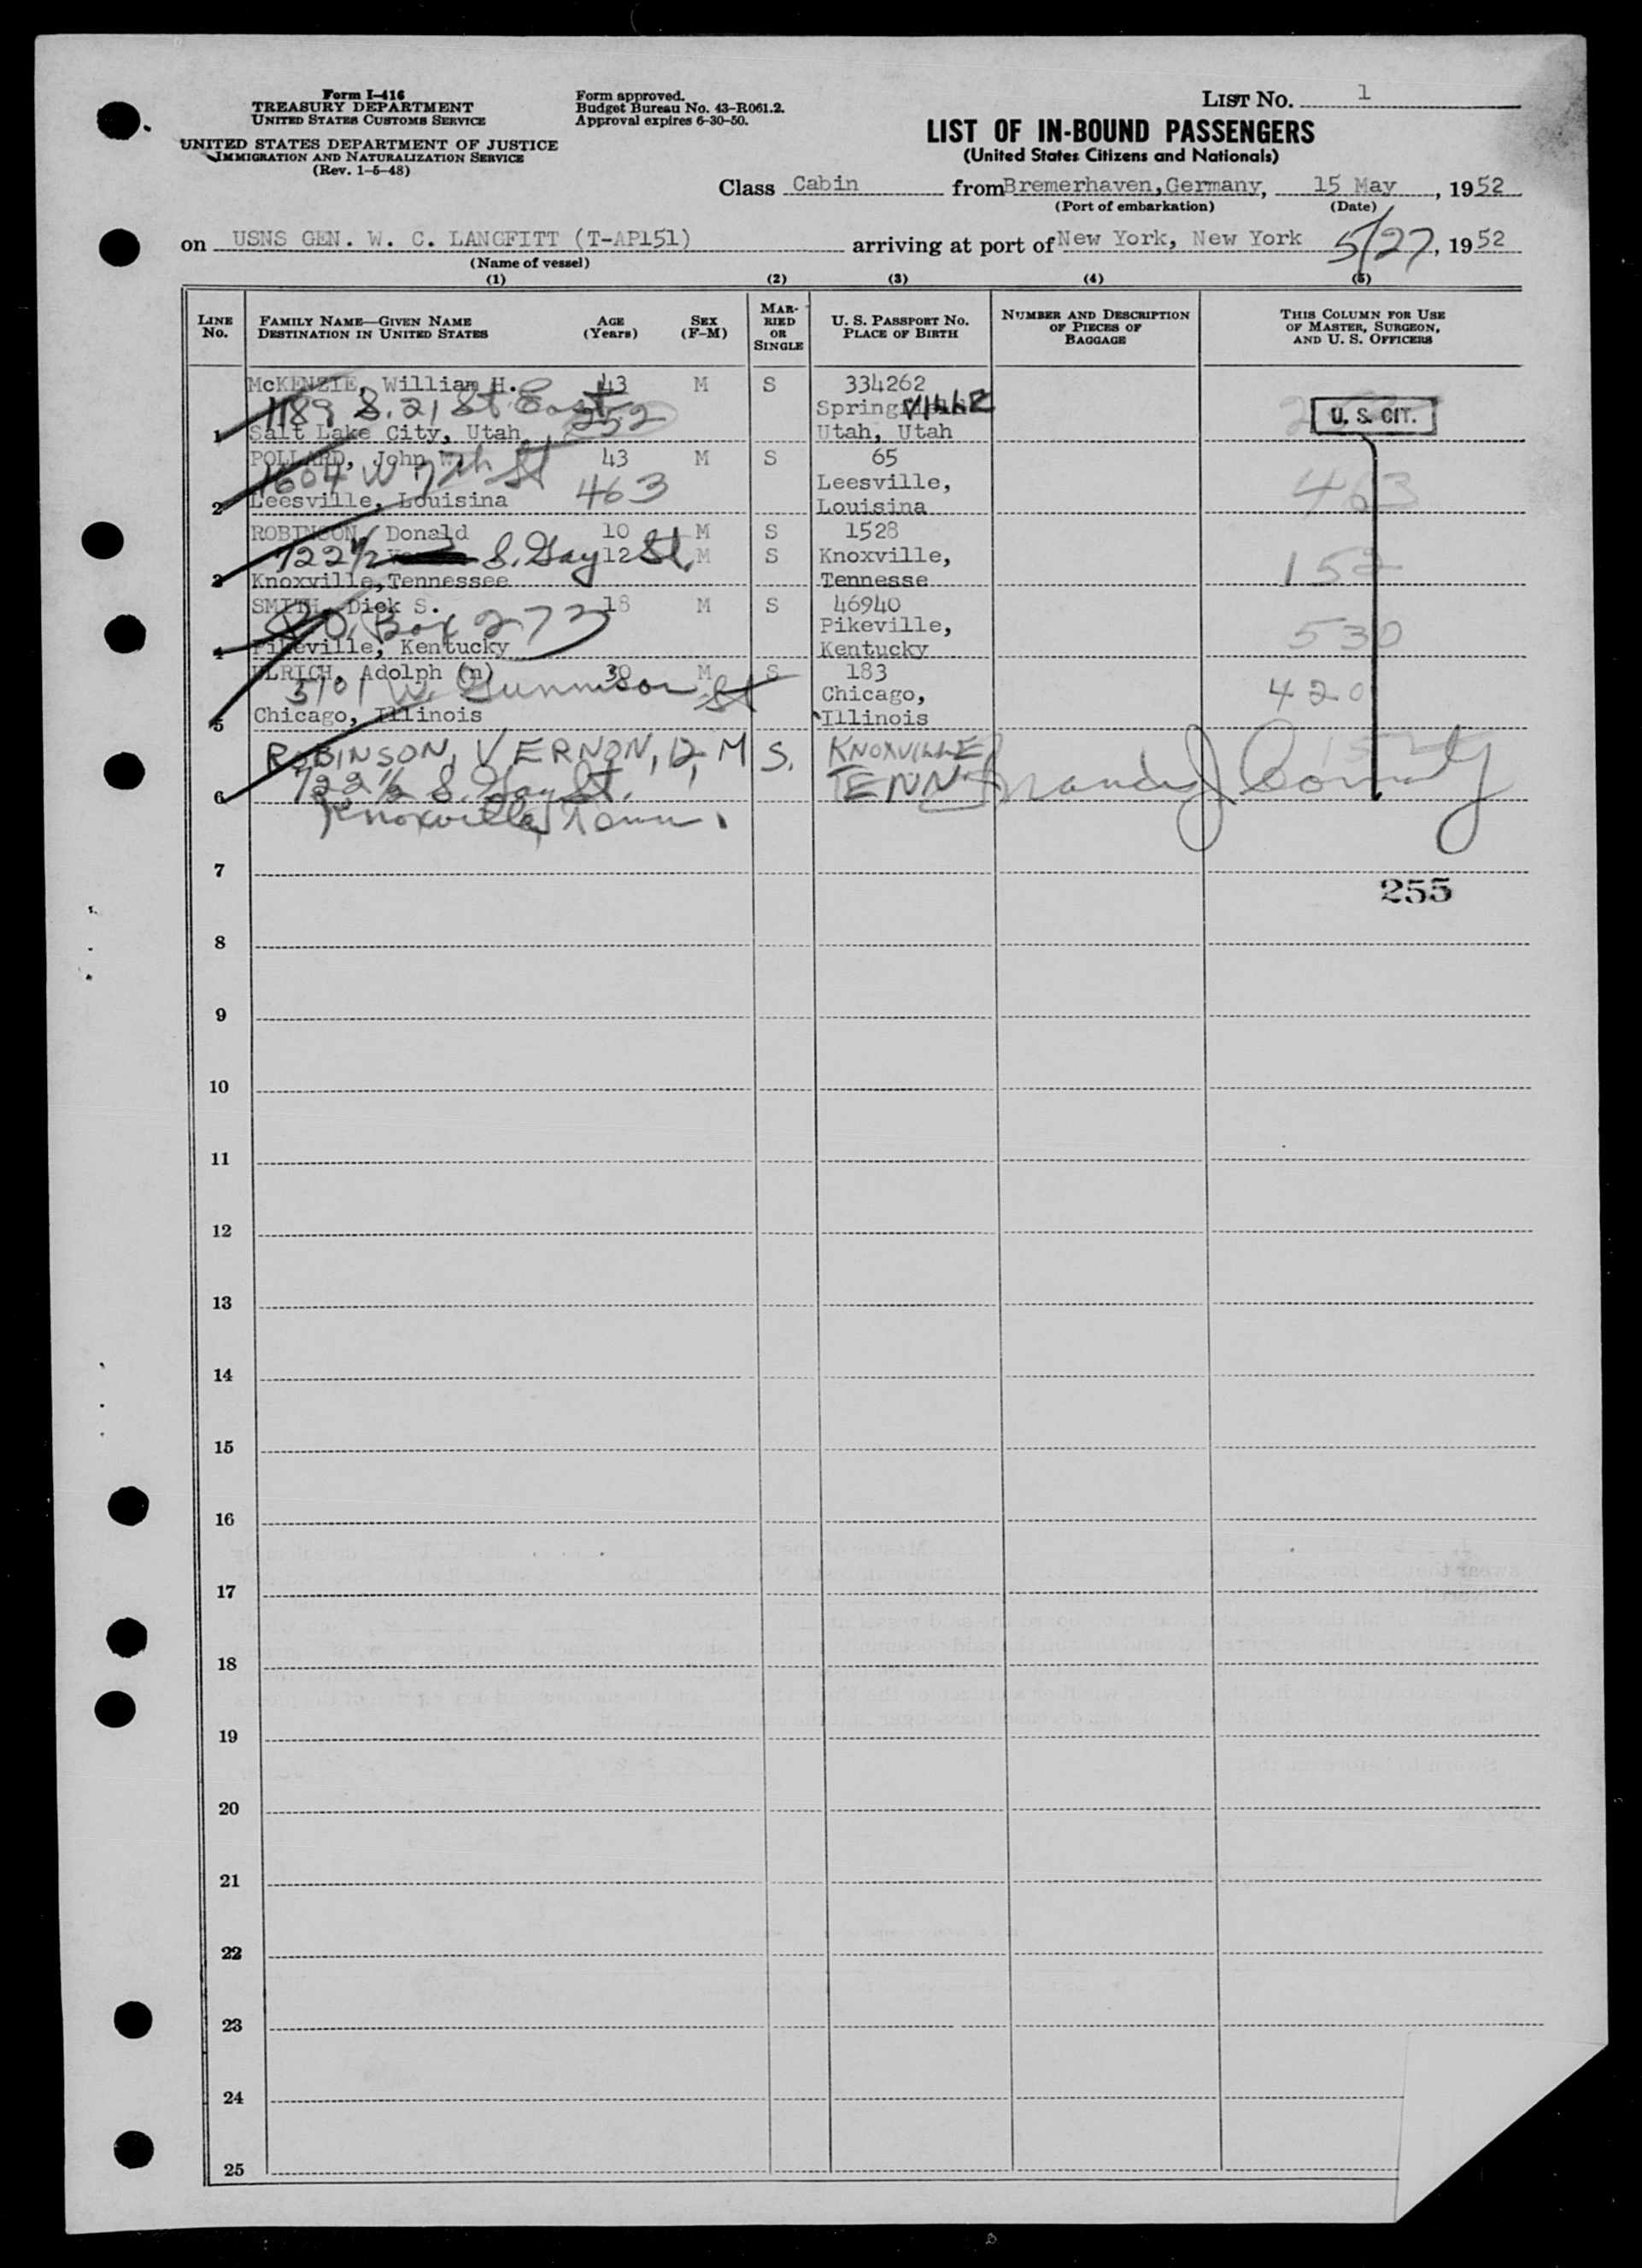 Form I-416
TREASURY DEPARTMENT
UNITED STATES CUSTOMS SERVICE
UNITED STATES DEPARTMENT OF JUSTICE
IMMIGRATION AND NATURALIZATION SERVICE
(Rev. 1-5-48)
Form approved.
Budget Bureau No. 43-R061.2.
Approval expires 6-30-50.
LIST NO. 1
LIST OF IN-BOUND PASSENGERS
(United States Citizens and Nationals)
Class Cabin from Bremerhaven, Germany, 15 May, 1952
(Port of embarkation) (Date)
on USNS GEN. W. C. LANGFITT (T-AP151) arriving at port of New York, New York 5/27, 1952
(Name of vessel)
(1) (2) (3) (4) (5)
LINE NO.
FAMILY NAME—GIVEN NAME
DESTINATION IN UNITED STATES
AGE (Years)
SEX (F-M)
MARRIED OR SINGLE
U. S. PASSPORT NO.
PLACE OF BIRTH
NUMBER AND DESCRIPTION OF PIECES OF BAGGAGE
THIS COLUMN FOR USE OF MASTER, SURGEON, AND U. S. OFFICERS
McKENZIE, William H. 43 M S 334262
1189 S. 21 St East 252 Springville
1 Salt Lake City, Utah Utah, Utah U. S. CIT.
POLLARD, John W. 43 M S 65
1604 W 7th St 463 Leesville, 463
2 Leesville, Louisina Louisina
ROBINSON, Donald 10 M S 1528
722 1/2 S. Gay St. 12 M S Knoxville, 152
3 Knoxville, Tennessee Tennesse
SMITH, Dick S. 18 M S 46940
P.O. Box 273 Pikeville, 530
4 Pikeville, Kentucky Kentucky
ULRICH, Adolph (n) 30 M S 183
5101 W. Gunnison St Chicago, 420
5 Chicago, Illinois Illinois
ROBINSON, VERNON, 12, M S. KNOXVILLE 152
6 722 1/2 S. Gay St. TENN
Knoxville, Tenn.
7
255
8
9
10
11
12
13
14
15
16
17
18
19
20
21
22
23
24
25